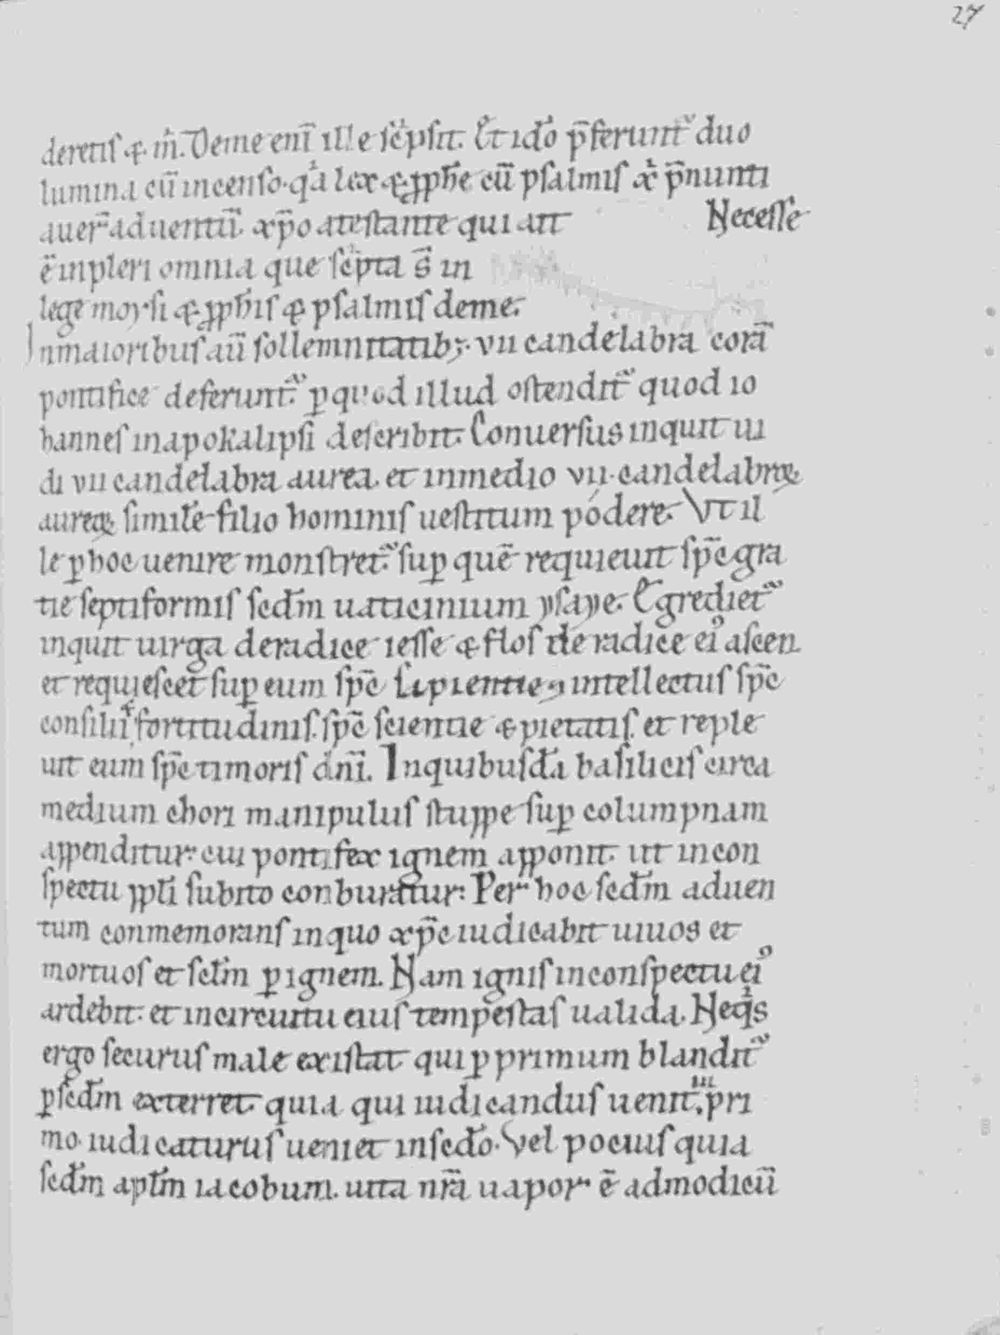 27
deretis & m̄. De me enī ille sc̄psit. Et idō p̄ferunt᷑ duo
lumina cū incenso. qa lex & ꝓph̄e cū psalmis xp̄i p̄nunti
auer̄ aduentū. xp̄o atestante qui ait Necesse
ē inpleri omnia que sc̄pta s̄ in
lege moysi & ꝓph̄is & psalmis de me.
In maioribus aū sollemnitatibꝫ. vii candelabra corā
pontifice deferunt᷑. ꝑ quod illud ostendit᷑ quod io
hannes in apokalipsi describit. Conuersus inquit ui
di vii candelabra aurea. et in medio vii. candelabroꝝ
aureoꝝ simile filio hominis uestitum podere. Vt il
le ꝑ hoc uenire monstret᷑. suꝑ quē requieuit sp̄c gra
tie septiformis sed̄m uaticinium ysaye. Egrediet᷑
inquit uirga de radice iesse & flos de radice ei᷒ ascen
et requiescet suꝑ eum sp̄c sapientie & intellectus sp̄c
consilii & fortitudinis. sp̄c scientie & pietatis. et reple
uit eum sp̄c timoris dn̄i. In quibusdā basilicis circa
medium chori manipulus stuppe suꝑ columpnam
appenditur. cui pontifex ignem apponit. ut in con
spectu ppl̄i subito conburatur. Per hoc sed̄m aduen
tum conmemorans in quo xp̄c iudicabit uiuos et
mortuos et sc̄lm ꝑ ignem. Nam ignis in conspectu ei᷒
ardebit. et in circuitu eius tempestas ualida. Neqis
ergo securus male existat qui ꝑ primum blandit᷑
ꝑ sed̄m exterret. quia qui iudicandus uenit in pri
mo. iudicaturus ueniet in sedō. Vel pocius quia
sed̄m apl̄m iacobum. uita nr̄a uapor ē ad modicū